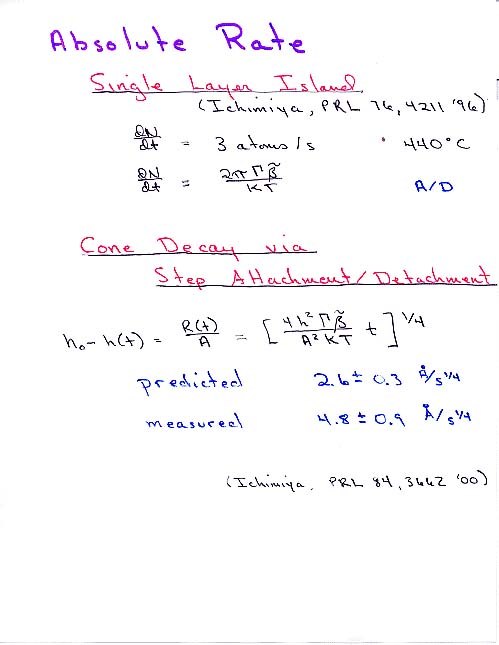 Absolute Rate
Single Layer Island
(Ichimiya, PRL 76, 4211 '96)
∂N/∂t = 3 atoms/s • 440°C
∂N/∂t = 2π Γ β̃ / KT A/D
Cone Decay via
Step Attachment/Detachment
h₀ - h(t) = R(t)/A = [ 4h² Γ β̃ / A² KT t ]^1/4
predicted 2.6 ± 0.3 Å/s^1/4
measured 4.8 ± 0.9 Å/s^1/4
(Ichimiya, PRL 84, 3662 '00)